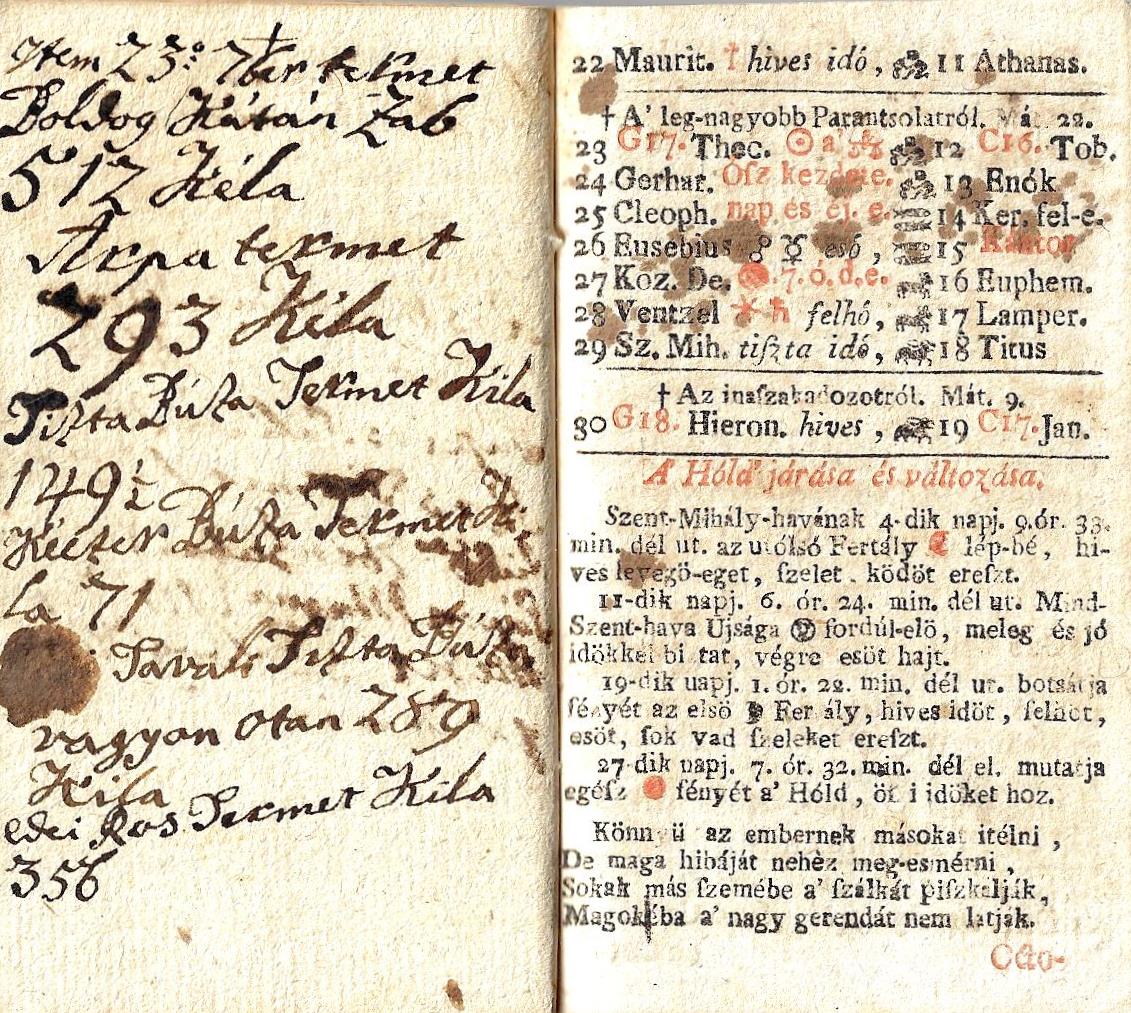 Item 23° 7ber termet
Boldog Kátán Zab
512 Kéla
Árpa termet
293 Kéla
Tiszta Búza Termet Kila
149½
Kéczer Búza Termet Ki
la 71
Tavali Tiszta Búza
vagyon otan 289
Kila
edei Ros Termet Kila
356
22 Maurit. † hives idó, 11 Athanas.
† A' leg-nagyobb Parantsolatról. Mát. 22.
23 G17. Thec. ☉ a ♎ 12 C16. Tob.
24 Gerhar. Öſz kezdete. 13 Enók
25 Cleoph. nap és éj. e. 14 Ker. fel-e.
26 Euſebius ☍ ☿ esó, 15 Kántor
27 Koz. De. 7. ó. d. e. 16 Euphem.
28 Ventzel ⚹ ♄ felhó, 17 Lamper.
29 Sz. Mih. tiſzta idó, 18 Titus
† Az inaſzakadozotról. Mát. 9.
30 G18. Hieron. hives, 19 C17. Jan.
A' Hóld' járása és változása.
Szent-Mihály-havának 4-dik napj. 9. ór. 33.
min. dél ut. az utólsó Fertály ☾ lép-bé, hi-
ves levegö-eget, ſzelet, ködöt ereſzt.
11-dik napj. 6. ór. 24. min. dél ut. Mind-
Szent-hava Ujsága fordúl-elö, meleg és jó
idökkel biztat, végre esöt hajt.
19-dik napj. 1. ór. 22. min. dél ut. botsátja
fényét az elsö ☽ Fertály, hives idöt, felhöt,
esöt, ſok vad ſzeleket ereſzt.
27-dik napj. 7. ór. 32. min. dél el. mutatja
egéſz fényét a' Hóld, öſzi idöket hoz.
Könnyü az embernek másokat itélni,
De maga hibáját nehèz meg-esmérni,
Sokak más ſzemébe a' ſzálkát piſzkálják,
Magokéba a' nagy gerendát nem látják.
Octo-